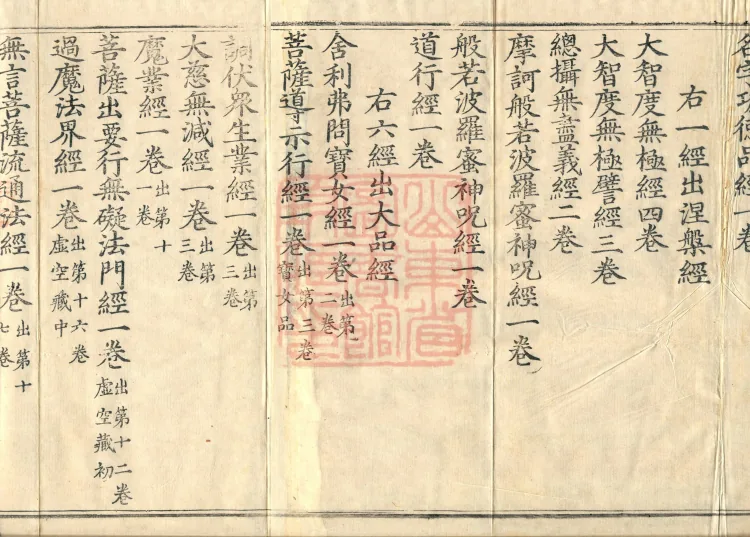 名字功德品經一卷
右一經出涅槃經
大智度無極經四卷
大智度無極譬經三卷
總攝無盡義經二卷
摩訶般若波羅蜜神呪經一卷
般若波羅蜜神呪經一卷
道行經一卷
右六經出大品經
舍利弗問寶女經一卷出第二卷
菩薩導示行經一卷出第三卷寶女品
詷伏眾生業經一卷出第三卷
大慈無減經一卷出第三卷
魔業經一卷出第十一卷
菩薩出要行無礙法門經一卷出第十二卷虛空藏初
過魔法界經一卷出第十六卷虛空藏中
無言菩薩流通法經一卷出第十七卷